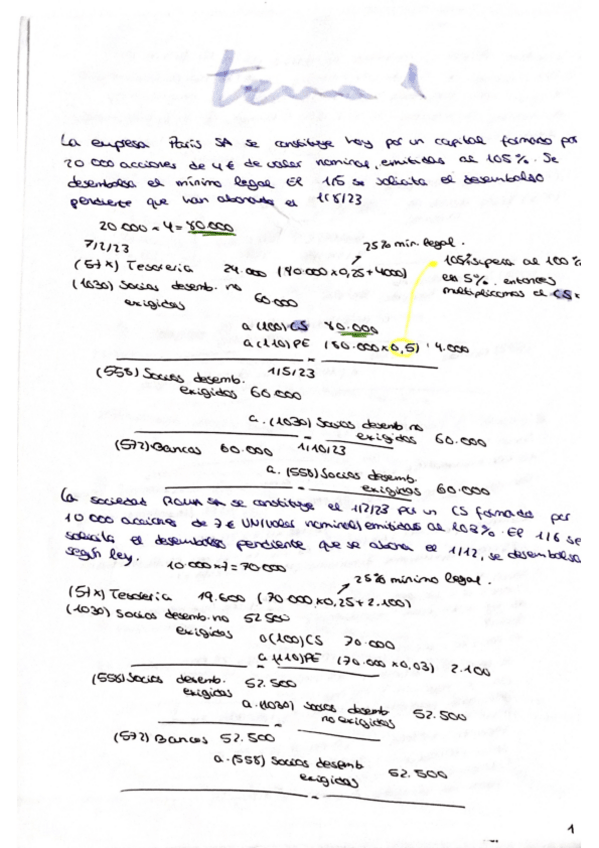 tema 1
La empresa París SA se constituye hoy por un capital formado por
20 000 acciones de 4 € de valor nominal, emitidas al 105%. Se
desembolsa el mínimo legal El 1/5 se solicita el desembolso
pendiente que han abonado el 1/8/23
20 000 × 4 = 80.000
7/2/23
25% min. legal.
(57x) Tesorería 24.000 (90.000 x 0,25 + 4000)
105% supera al 100%
en 5%. entonces
multiplicamos el CS x
(1030) Socios desemb. no
exigidos 60.000
a (100) CS 80.000
a (110) PE (80.000 x 0,5) 4.000
1/5/23
(558) Socios desemb.
exigidos 60.000
a. (1030) Socios desemb no
exigidos 60.000
(572) Bancos 60.000 1/10/23
a. (558) Socios desemb.
exigidos 60.000
La sociedad SA se constituye el 1/2/23 por un CS formado por
10 000 acciones de 7 € VN (valor nominal) emitidas al 103%. El 1/6 se
solicita el desembolso pendiente que se abona el 1/12, se desembolsa
según ley.
10.000 x 7 = 70 000
25% mínimo legal.
(57x) Tesorería 19.600 (70 000 x 0,25 + 2.100)
(1030) Socios desemb. no 52 500
exigidos
a (100) CS 70.000
a (110) PE (70.000 x 0,03) 2.100
(558) Socios desemb. 52.500
exigidos
a. (1030) Socios desemb
no exigidos 52.500
(572) Bancos 52.500
a. (558) Socios desemb.
exigidos 52.500
1